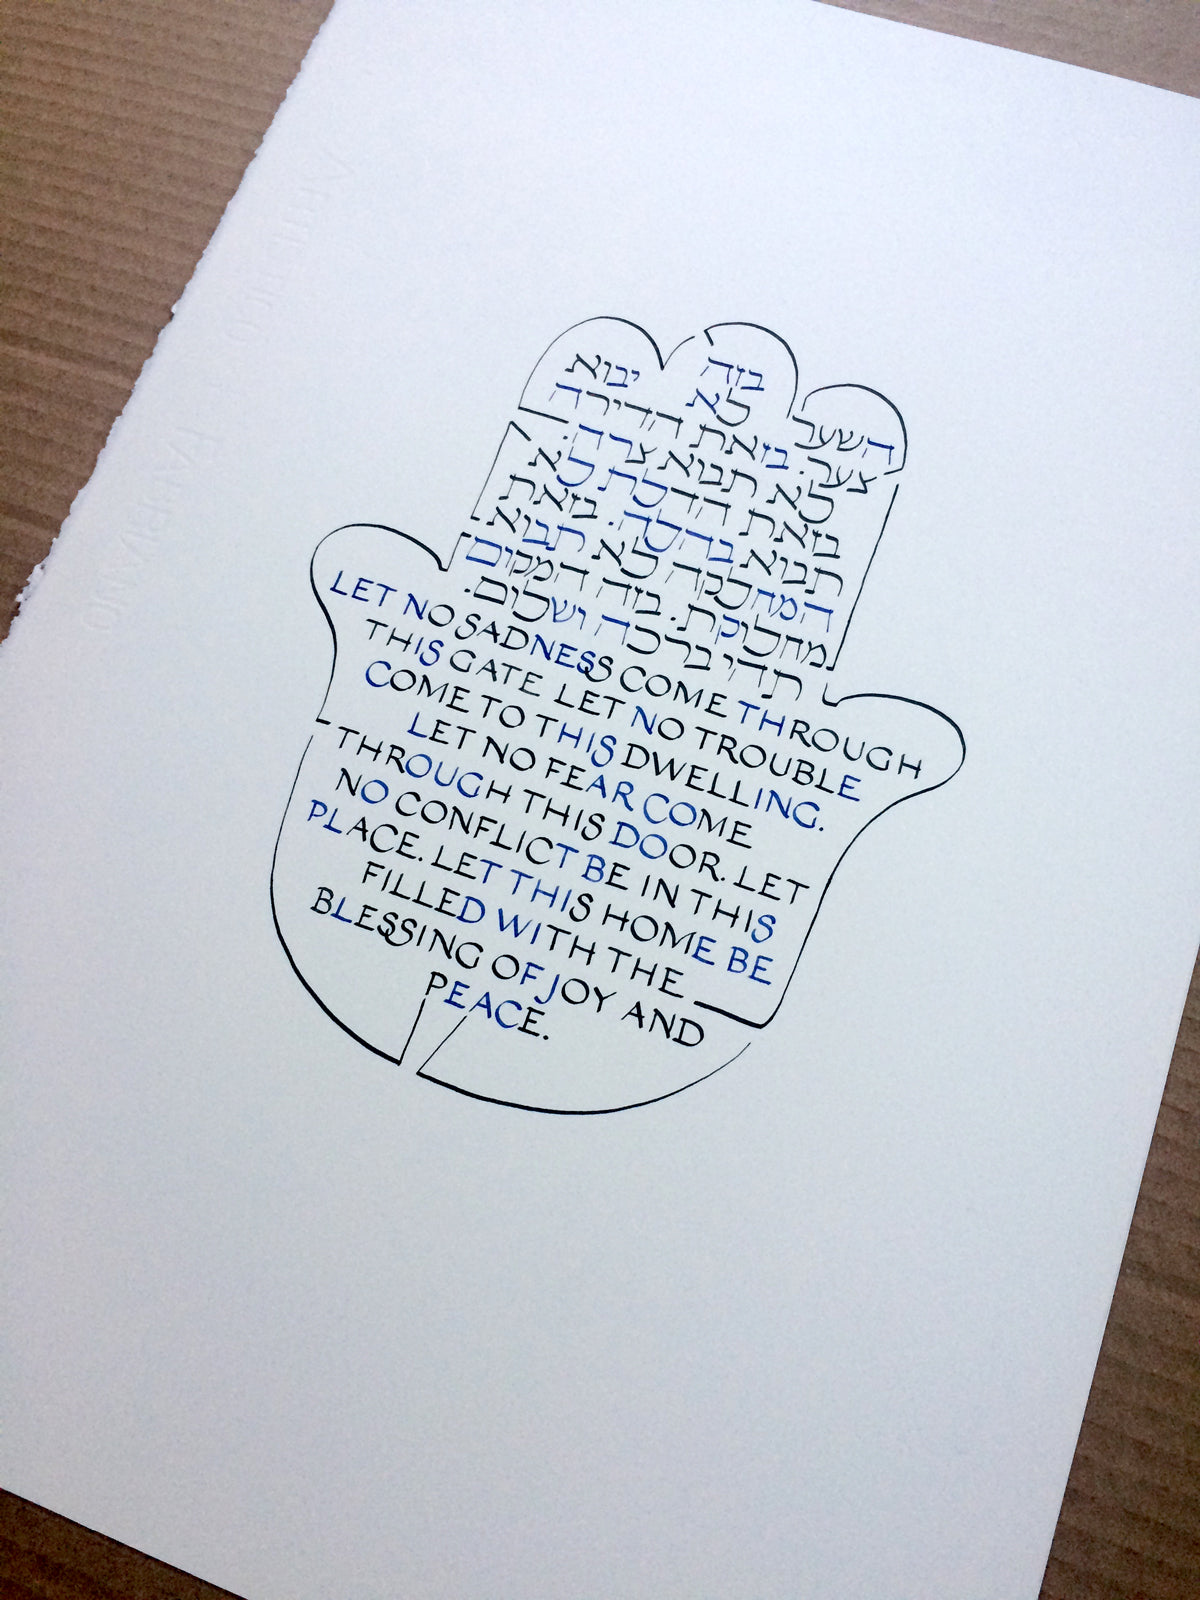 בזה
השער לא יבוא
צער. בזאת הדירה
לא תבוא צרה.
בזאת הדלת לא
תבוא בהלה. בזאת
המחלקה לא תבוא
מחלוקת. בזה המקום
תהי ברכה ושלום.
LET NO SADNESS COME THROUGH
THIS GATE LET NO TROUBLE
COME TO THIS DWELLING.
LET NO FEAR COME
THROUGH THIS DOOR. LET
NO CONFLICT BE IN THIS
PLACE. LET THIS HOME BE
FILLED WITH THE
BLESSING OF JOY AND
PEACE.